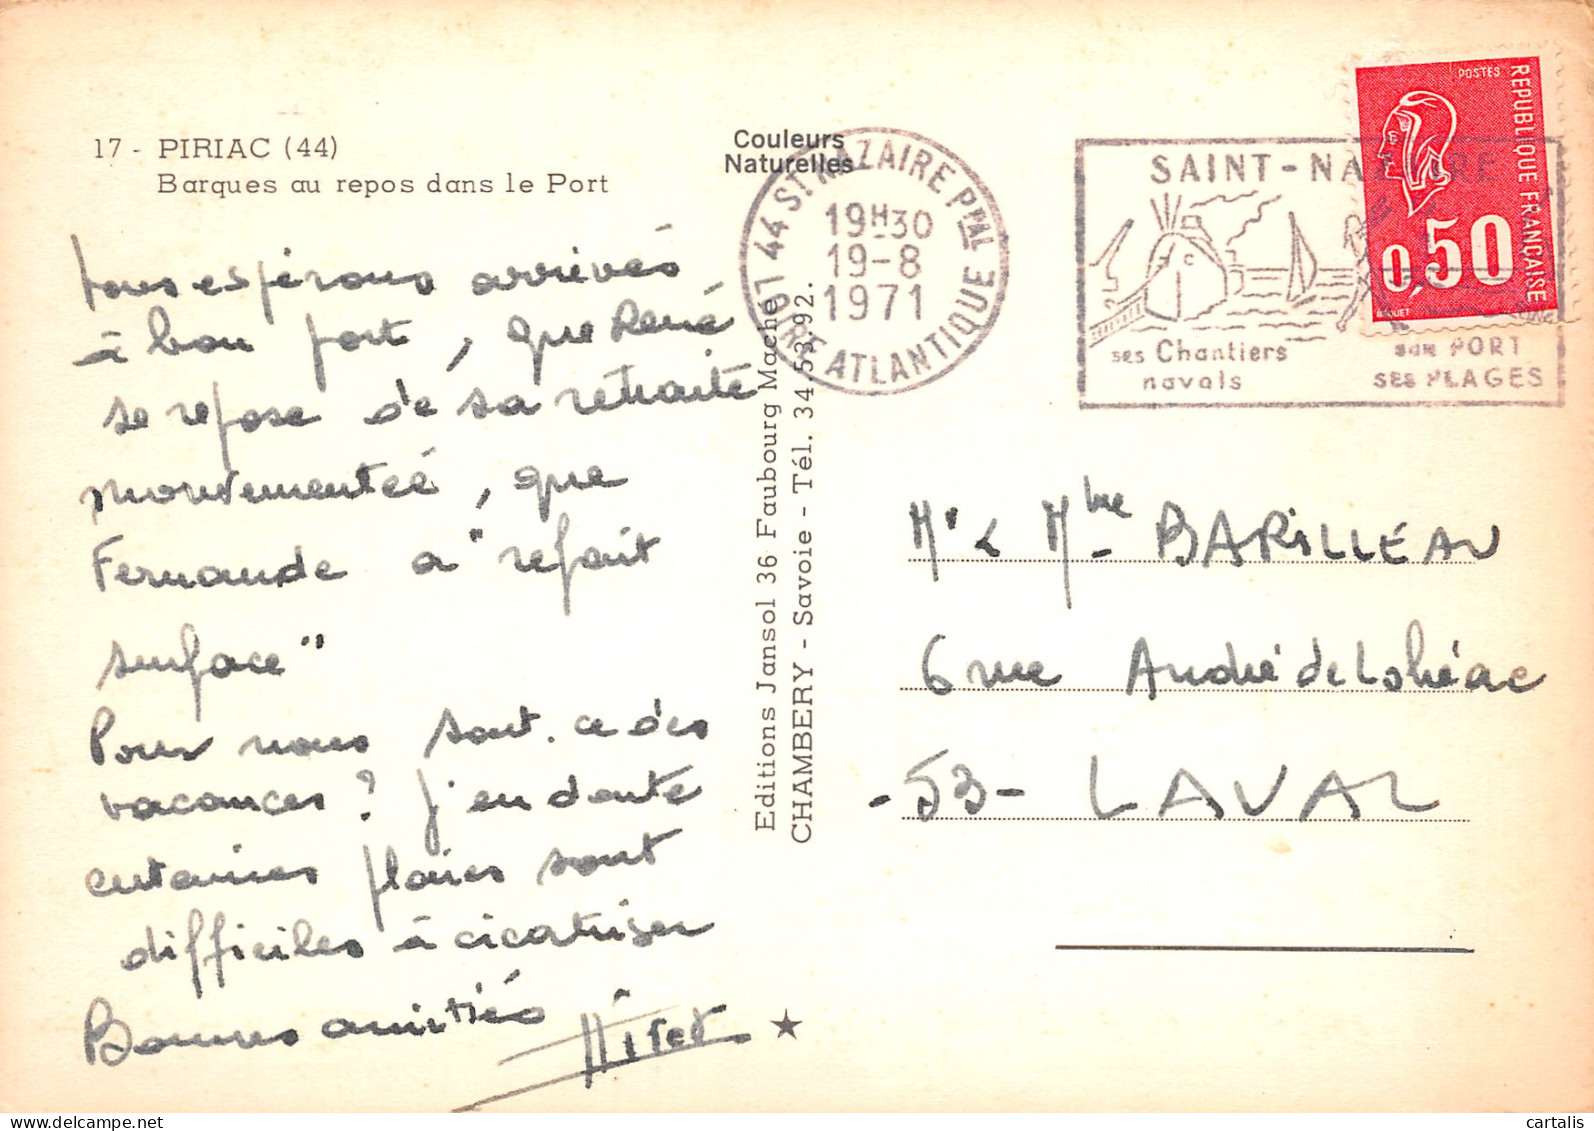 17 - PIRIAC (44)
Barques au repos dans le Port
Vous espérons arrivés
à bon port, que René
se repose de sa retraite
mouvementée, que
Fernande a "refait
surface"
Pour nous sont-ce des
vacances? J'en doute
certaines plaies sont
difficiles à cicatriser
Bonnes amitiés
Couleurs
Naturelles
Editions Jansol 36 Faubourg Maché
CHAMBERY - Savoie - Tél. 34.53.92.
44 ST NAZAIRE PPAL
19H30
19-8
1971
LOIRE ATLANTIQUE
SAINT-NAZAIRE
ses Chantiers
navals
son PORT
SES PLAGES
POSTES
REPUBLIQUE FRANÇAISE
0,50
BEQUET
Mr & Mme BARILLEAU
6 rue André de Lohéac
- 53 - LAVAL
cartalis
www.delcampe.net